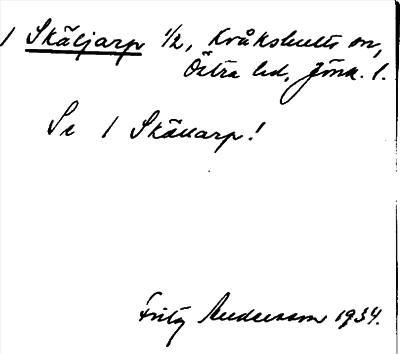 / Skäljarp 1/2, Kråkshults sn,
Östra hd, Jönk. l.
Se / Skällarp!
Fritz Andersson 1934.